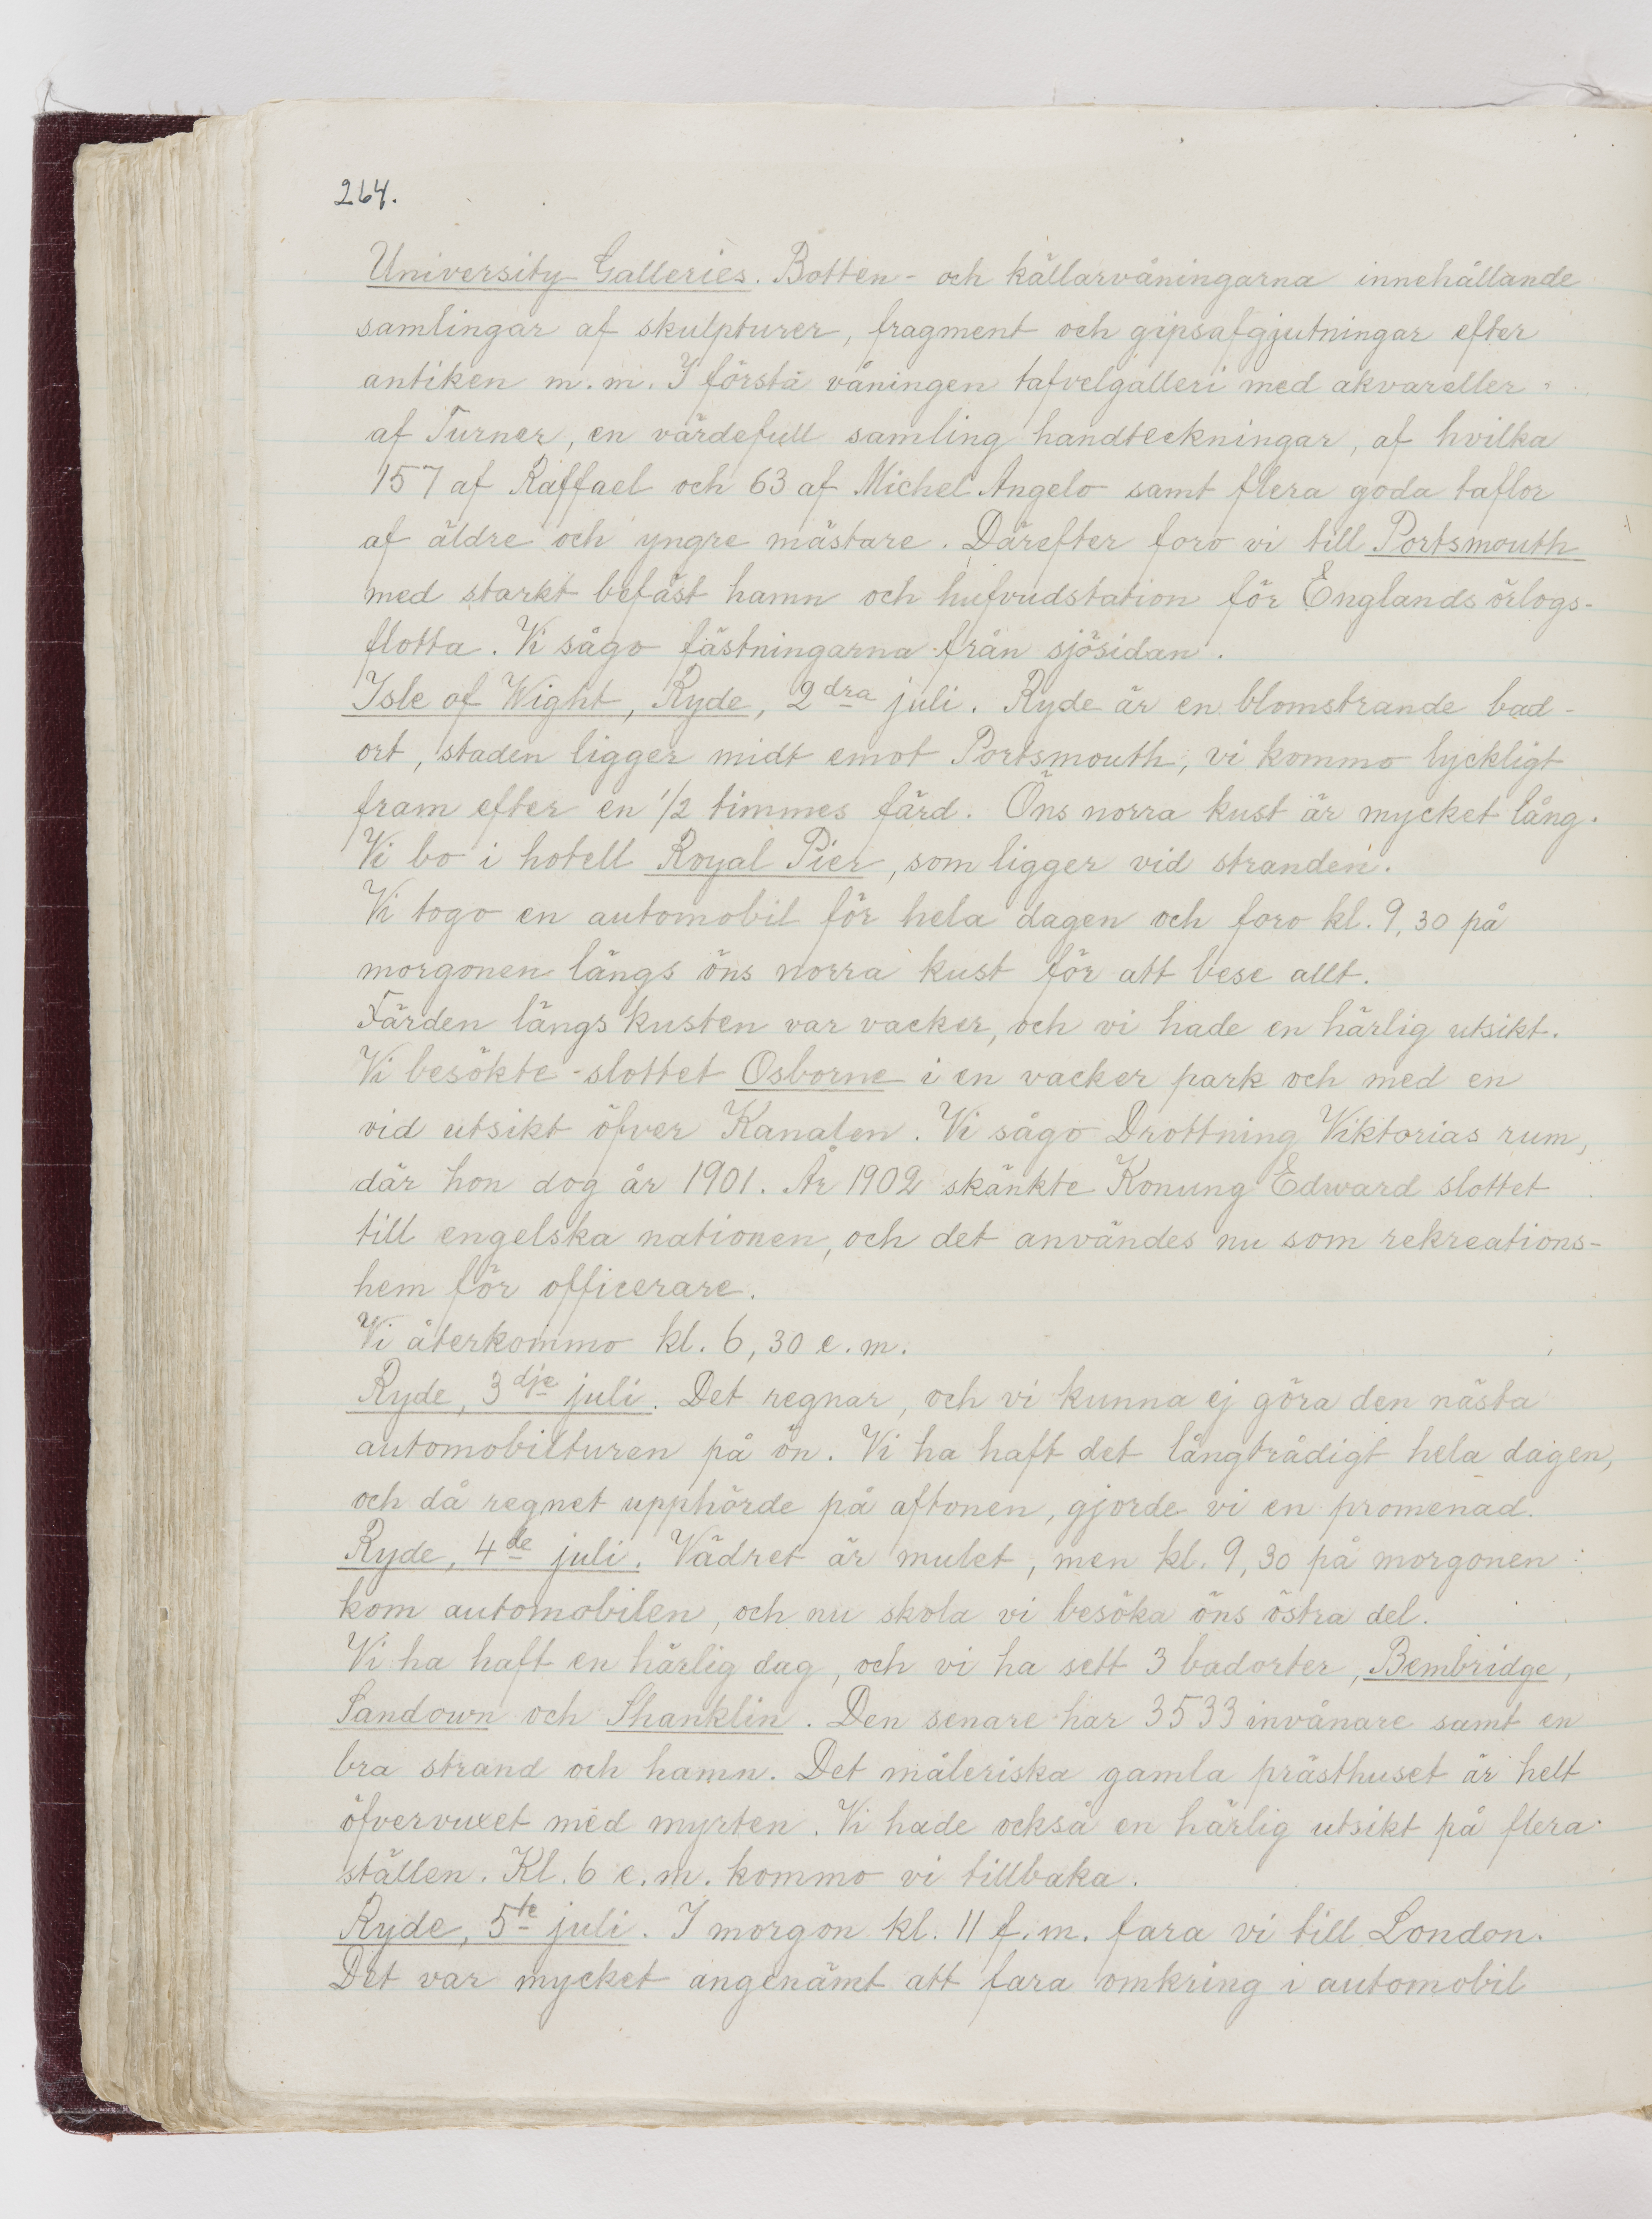 264.
University Galleries. Botten- och källarvåningarna innehållande
samlingar af skulpturer, fragment och gipsafgjutningar efter
antiken m.m. I första våningen tafvelgalleri med akvareller
af Turner, en värdefull samling handteckningar, af hvilka
157 af Raffael och 63 af Michel Angelo samt flera goda taflor
af äldre och yngre mästare. Därefter foro vi till Portsmouth
med starkt befäst hamn och hufvudstation för Englands örlogs-
flotta. Vi sågo fästningarna från sjösidan.
Isle of Wight, Ryde, 2dra juli. Ryde är en blomstrande bad-
ort, staden ligger midt emot Portsmouth, vi kommo lyckligt
fram efter en 1/2 timmes färd. Öns norra kust är mycket lång.
Vi bo i hotell Royal Pier, som ligger vid stranden.
Vi togo en automobil för hela dagen och foro kl. 9,30 på
morgonen längs öns norra kust för att bese allt.
Färden längs kusten var vacker, och vi hade en härlig utsikt.
Vi besökte slottet Osborne i en vacker park och med en
vid utsikt öfver Kanalen. Vi sågo Drottning Viktorias rum,
där hon dog år 1901. År 1902 skänkte Konung Edward slottet
till engelska nationen, och det användes nu som rekreations-
hem för officerare.
Vi återkommo kl. 6,30 e.m.
Ryde, 3dje juli. Det regnar, och vi kunna ej göra den nästa
automobilturen på ön. Vi ha haft det långtrådigt hela dagen,
och då regnet upphörde på aftonen, gjorde vi en promenad.
Ryde, 4de juli. Vädret är mulet, men kl. 9,30 på morgonen
kom automobilen, och nu skola vi besöka öns östra del.
Vi ha haft en härlig dag, och vi ha sett 3 badorter, Bembridge,
Sandown och Shanklin. Den senare har 3533 invånare samt en
bra strand och hamn. Det måleriska gamla prästhuset är helt
öfvervuxet med myrten. Vi hade också en härlig utsikt på flera
ställen. Kl. 6 e.m. kommo vi tillbaka.
Ryde, 5te juli. I morgon kl. 11 f.m. fara vi till London.
Det var mycket angenämt att fara omkring i automobil